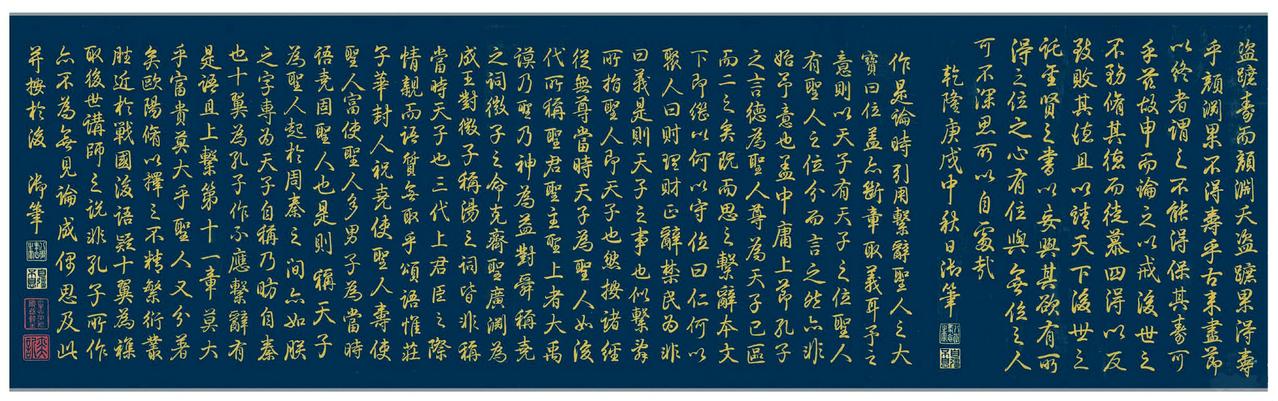 盜蹠壽而顏淵夭盜蹠果得壽
乎顏淵果不得壽乎古來盡節
以終者謂之不能得保其壽可
乎茲故申而論之以戒後世之
不務脩其德而徒慕四得以反
致敗其德且以請天下後世之
託聖賢之書以妄興其欲有所
得之位之心有位與無位之人
可不深思所以自處哉
乾隆庚戌中秋日御筆
作是論時引用繫辭聖人之大
寶曰位蓋亦斷章取義耳予之
意則以天子有天子之位聖人
有聖人之位分而言之然亦非
始予意也蓋中庸上節孔子
之言德為聖人尊為天子已區
而二之矣既而思之繫辭本文
下即繼以何以守位曰仁何以
聚人曰財理財正辭禁民為非
曰義是則天子之事也似繫辭
所指聖人即天子也然按諸經
從無尊當時天子為聖人如後
代所稱聖君聖主聖上者大禹
謨乃聖乃神為益對舜稱堯
之詞微子之命克齊聖廣淵為
成王對微子稱湯之詞皆非稱
當時天子也三代上君臣之際
情親而語質無取乎頌語惟莊
子華封人祝堯使聖人壽使
聖人富使聖人多男子為當時
語堯固聖人也是則稱天子
為聖人起於周秦之間亦如朕
之字專為天子自稱乃昉自秦
也十翼為孔子作不應繫辭有
是語且上繫第十一章莫大
乎富貴莫大乎聖人又分著
矣歐陽脩以擇之不精繁衍叢
脞近於戰國後語疑十翼為襍
取後世講師之說非孔子所作
亦不為無見論成偶思及此
并按於後 御筆